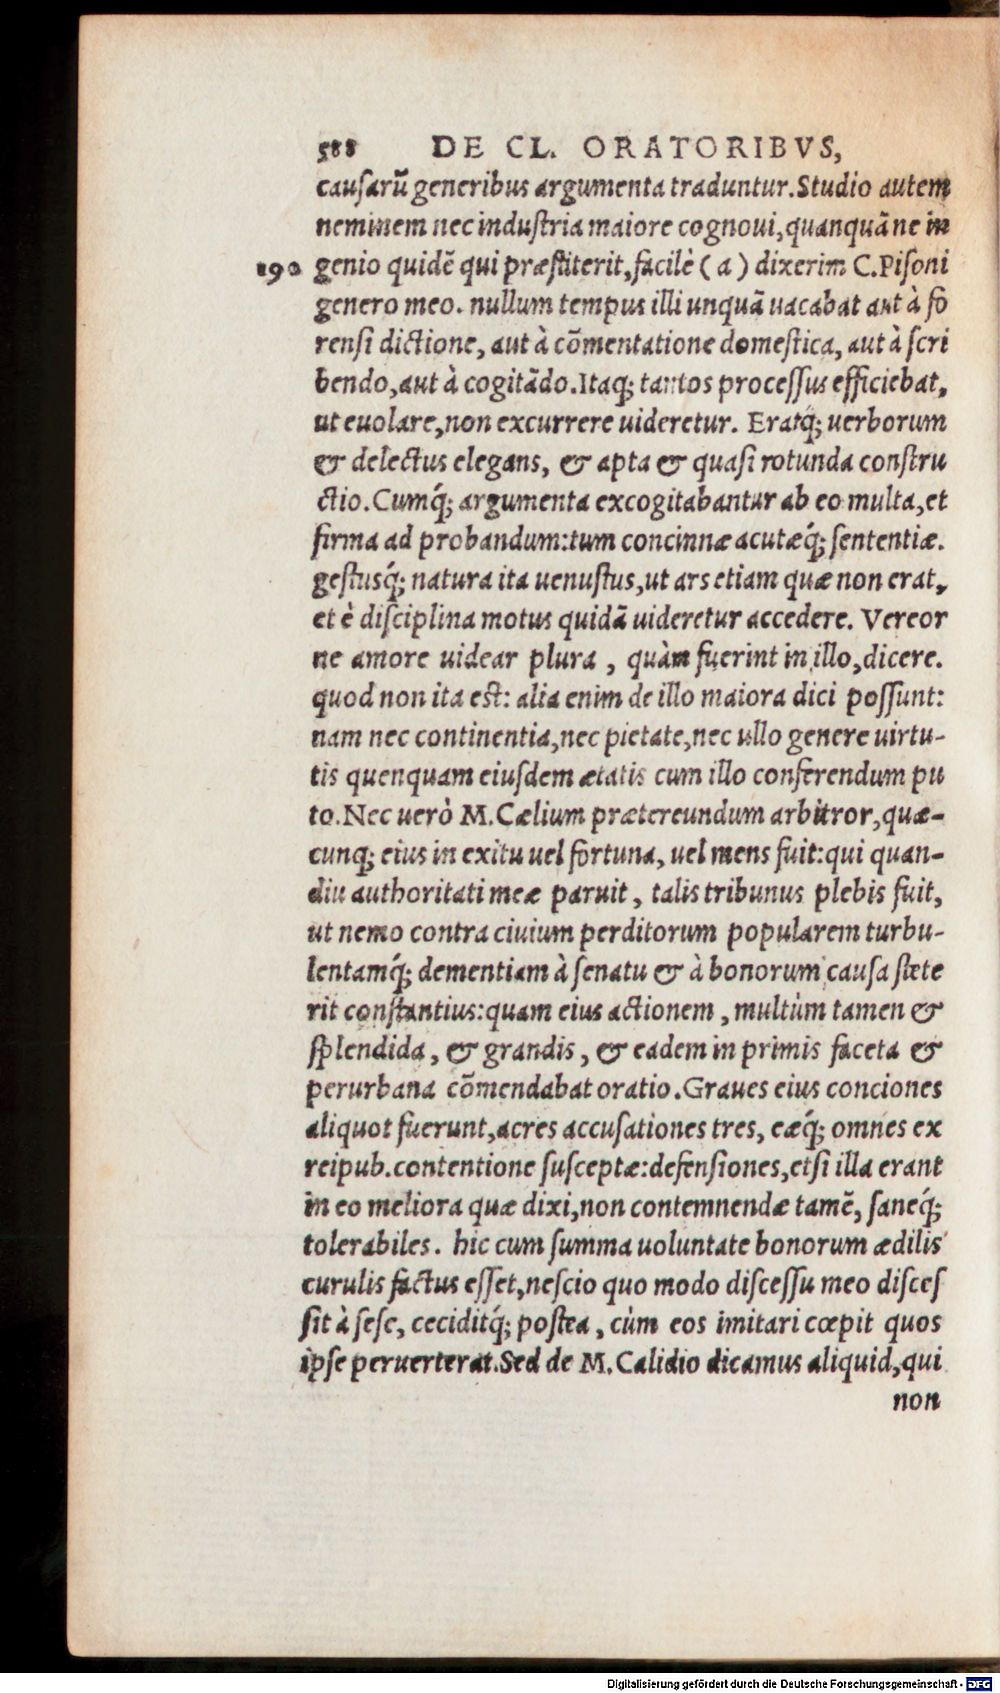 588 DE CL. ORATORIBVS,
causarū generibus argumenta traduntur. Studio autem
neminem nec industria maiore cognoui, quanquā ne in
190 genio quidē qui præstiterit, facilè (a) dixerim C. Pisoni
genero meo. nullum tempus illi unquā uacabat aut à fo
rensi dictione, aut à cōmentatione domestica, aut à scri
bendo, aut à cogitādo. Itaq; tantos processus efficiebat,
ut euolare, non excurrere uideretur. Eratq́; uerborum
& delectus elegans, & apta & quasi rotunda constru
ctio. Cumq́; argumenta excogitabantur ab eo multa, et
firma ad probandum: tum concinnæ acutæq́; sententiæ.
gestusq́; natura ita uenustus, ut ars etiam quæ non erat,
et è disciplina motus quidā uideretur accedere. Vereor
ne amore uidear plura, quàm fuerint in illo, dicere.
quod non ita est: alia enim de illo maiora dici possunt:
nam nec continentia, nec pietate, nec ullo genere uirtu-
tis quenquam eiusdem ætatis cum illo conferendum pu
to. Nec uerò M. Cælium prætereundum arbitror, quæ-
cunq; eius in exitu uel fortuna, uel mens fuit: qui quan-
diu authoritati meæ paruit, talis tribunus plebis fuit,
ut nemo contra ciuium perditorum popularem turbu-
lentamq́; dementiam à senatu & à bonorum causa stete
rit constantius: quam eius actionem, multùm tamen &
splendida, & grandis, & eadem in primis faceta &
perurbana cōmendabat oratio. Graues eius conciones
aliquot fuerunt, acres accusationes tres, eæq́; omnes ex
reipub. contentione susceptæ: defensiones, etsi illa erant
in eo meliora quæ dixi, non contemnendæ tamē, saneq́;
tolerabiles. hic cum summa uoluntate bonorum ædilis
curulis factus esset, nescio quo modo discessu meo disces
sit à sese, ceciditq́; postea, cùm eos imitari cœpit quos
ipse peruerterat. Sed de M. Calidio dicamus aliquid, qui
non
Digitalisierung gefördert durch die Deutsche Forschungsgemeinschaft - DFG